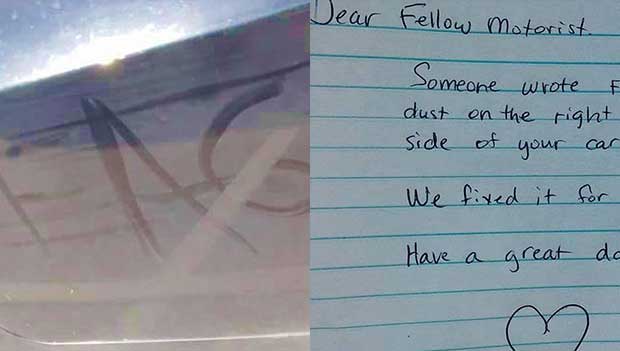 FAG
Dear Fellow Motorist.
Someone wrote F
dust on the right
side of your car
We fixed it for
Have a great da